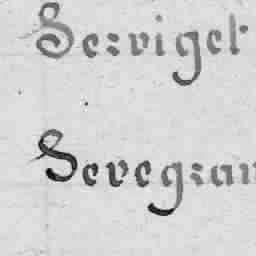 Serviget
Sevegran